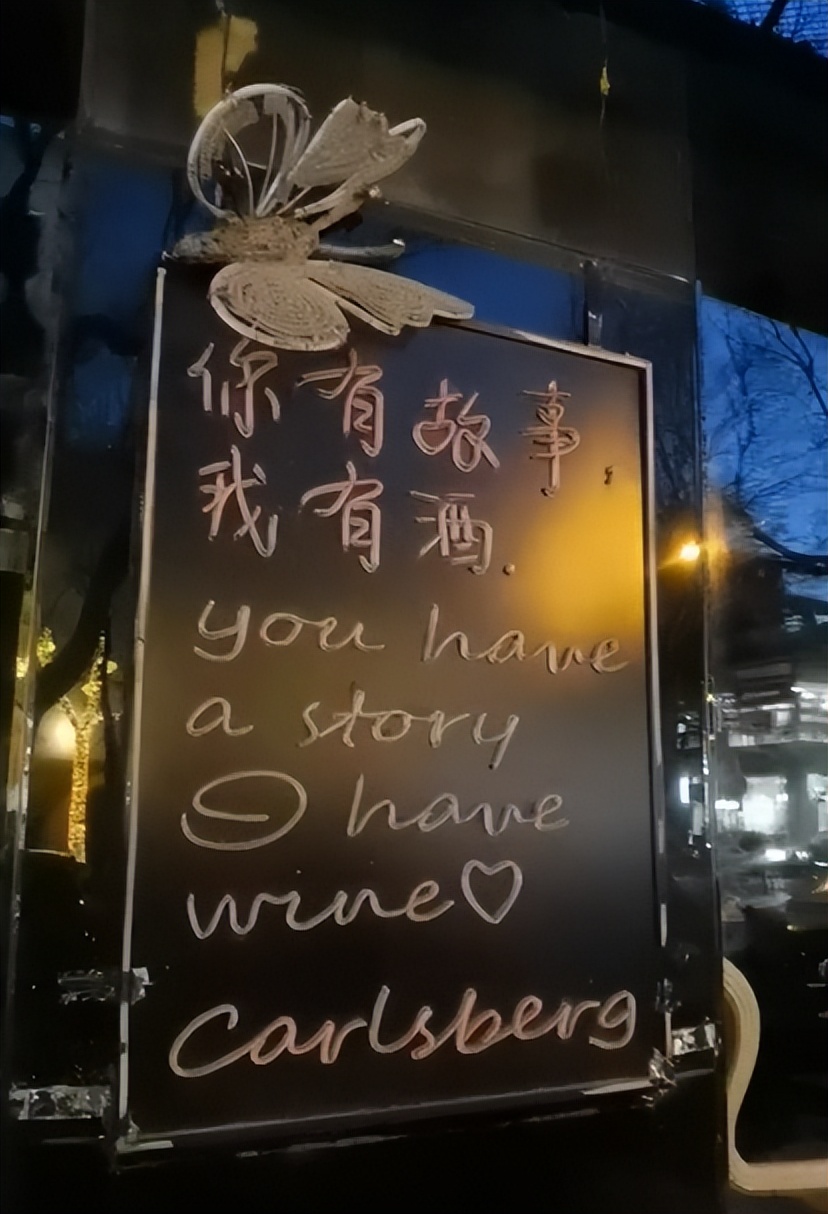 你有故事,
我有酒.
you have
a story
I have
wine♡
Carlsberg